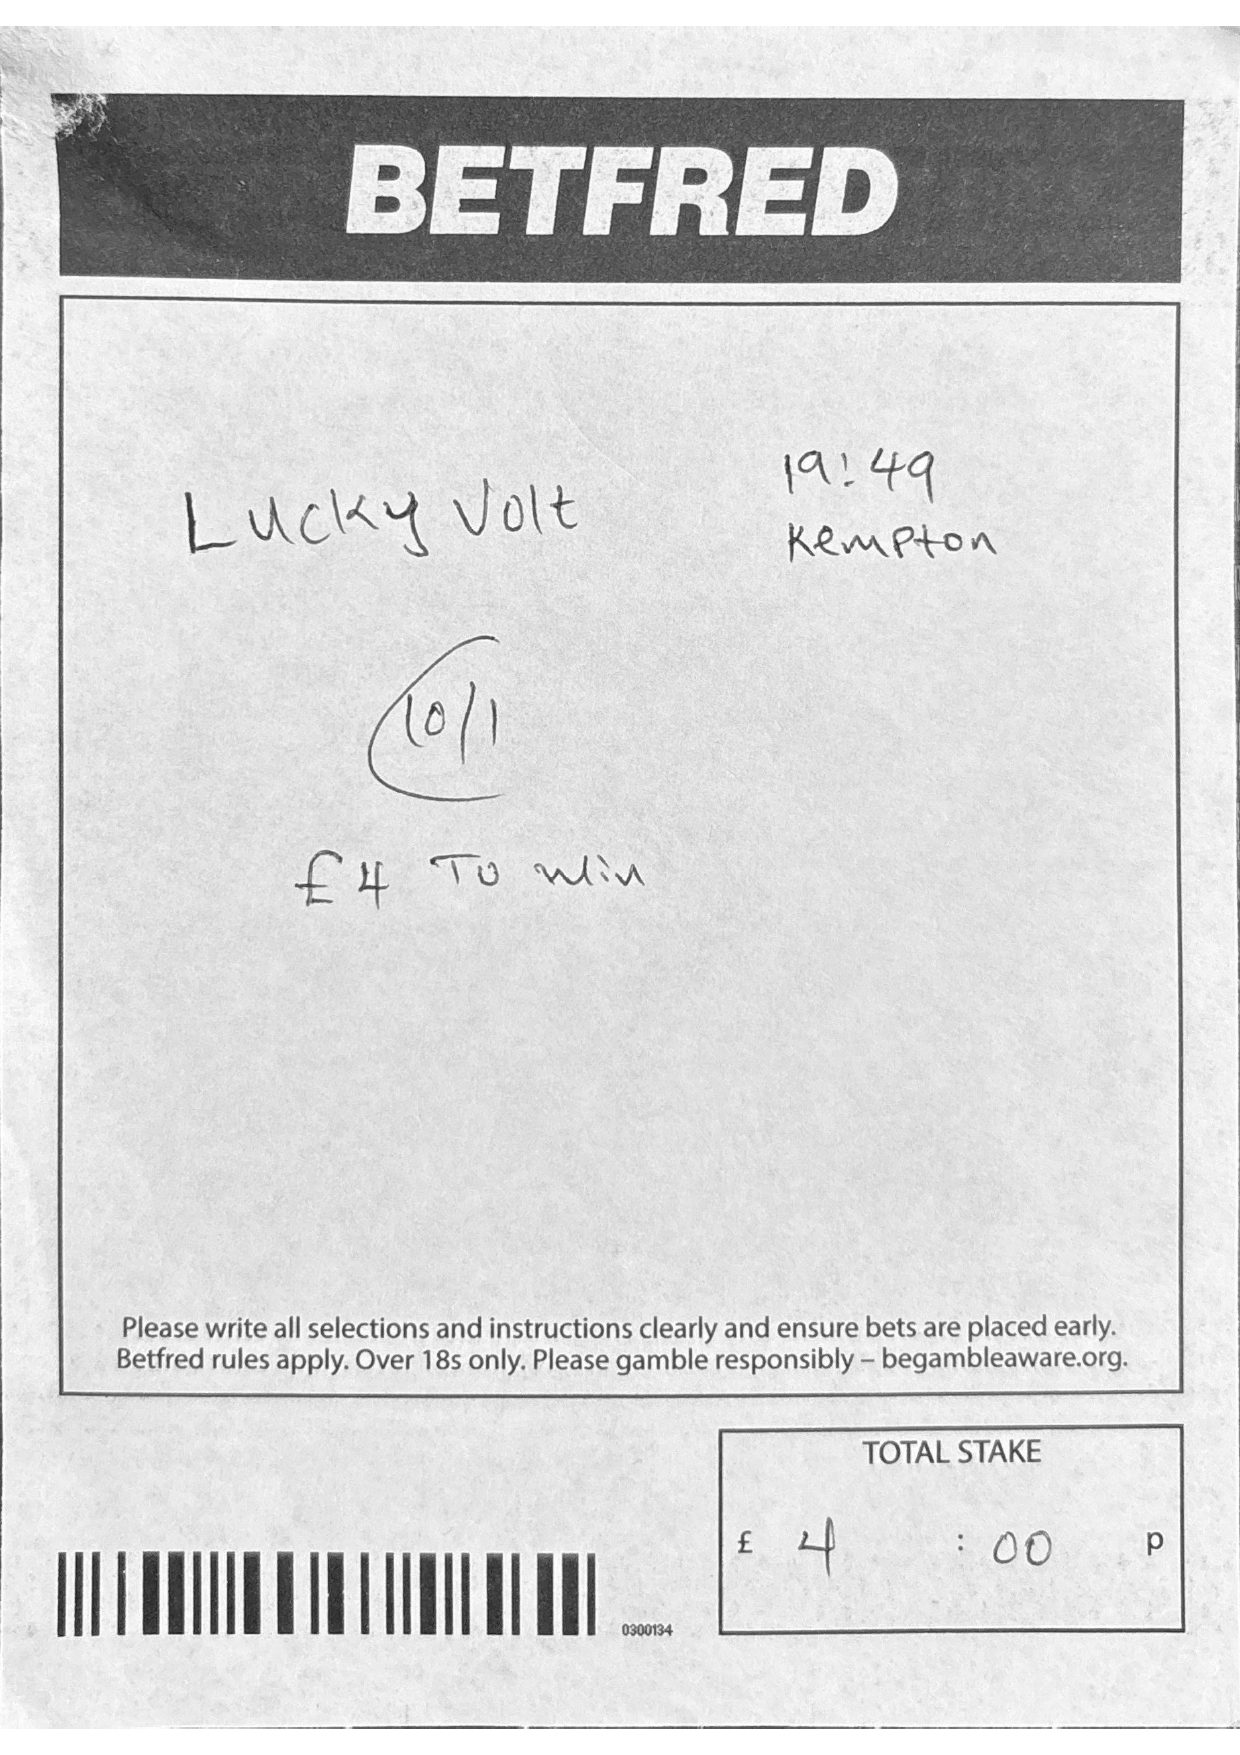 BETFRED
Lucky Volt
19:49
Kempton
10/1
£4 To Win
Please write all selections and instructions clearly and ensure bets are placed early.
Betfred rules apply. Over 18s only. Please gamble responsibly – begambleaware.org.
TOTAL STAKE
£ 4 : 00 p
0300134